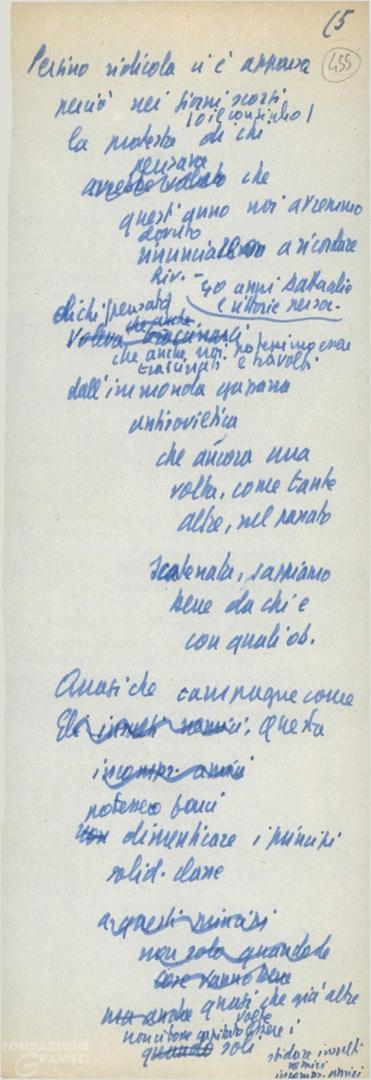 15
455
Persino ridicola ci è apparsa
perciò nei giorni scorsi
(o il consiglio)
la protesta di chi
pensava
avrebbe voluto che
quest'anno noi avremmo
dovuto
rinunciare a ricordare
Riv. –
40 anni battaglie
e vittorie
di chi pensava
che anche
Voleva trascinarci
che anche noi potessimo essere
trascinati e travolti
dall'immonda
antisovietica
che ancora una
volta, come tante
altre, nel passato
scatenata, sappiamo
bene da chi e
con quali ob.
Quasi che campagne come
questa
incompr. amici
potessero farci
non dimenticare i principi
solid. classe
a questi principi
non solo quando le
cose vanno bene
ma anche quasi che già altre
volte
non ci fosse capitato essere i
quando soli
sfidare insulti
nemici
incompr. amici
FONDAZIONE
GRAMSCI